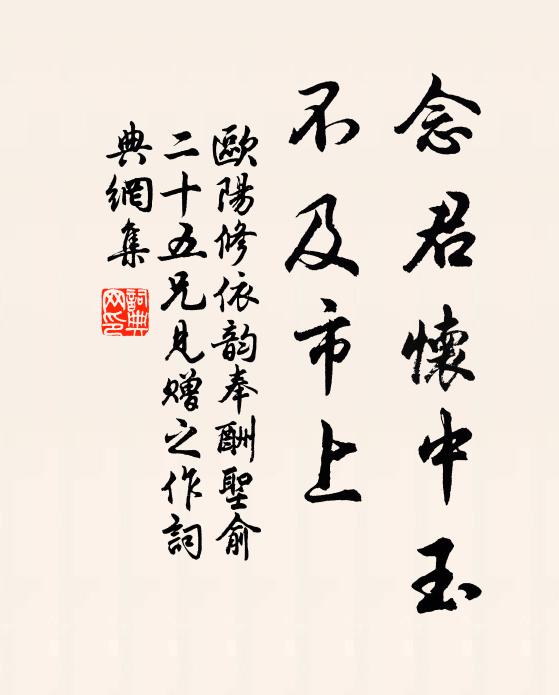 念君懷中玉
不及市上
歐陽修依韵奉酬聖俞
二十五兄見贈之作詞
典網集
詞典
网印